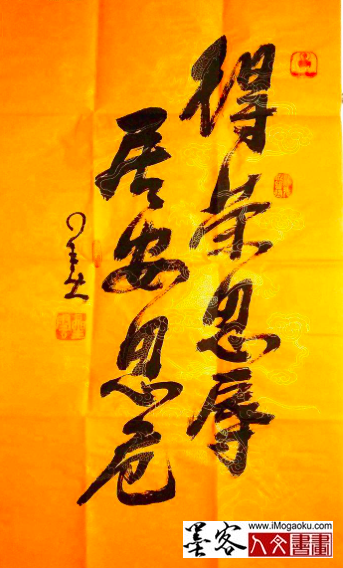 得荣思辱
居安思危
墨客
www.iMogaoku.com
人文書畫